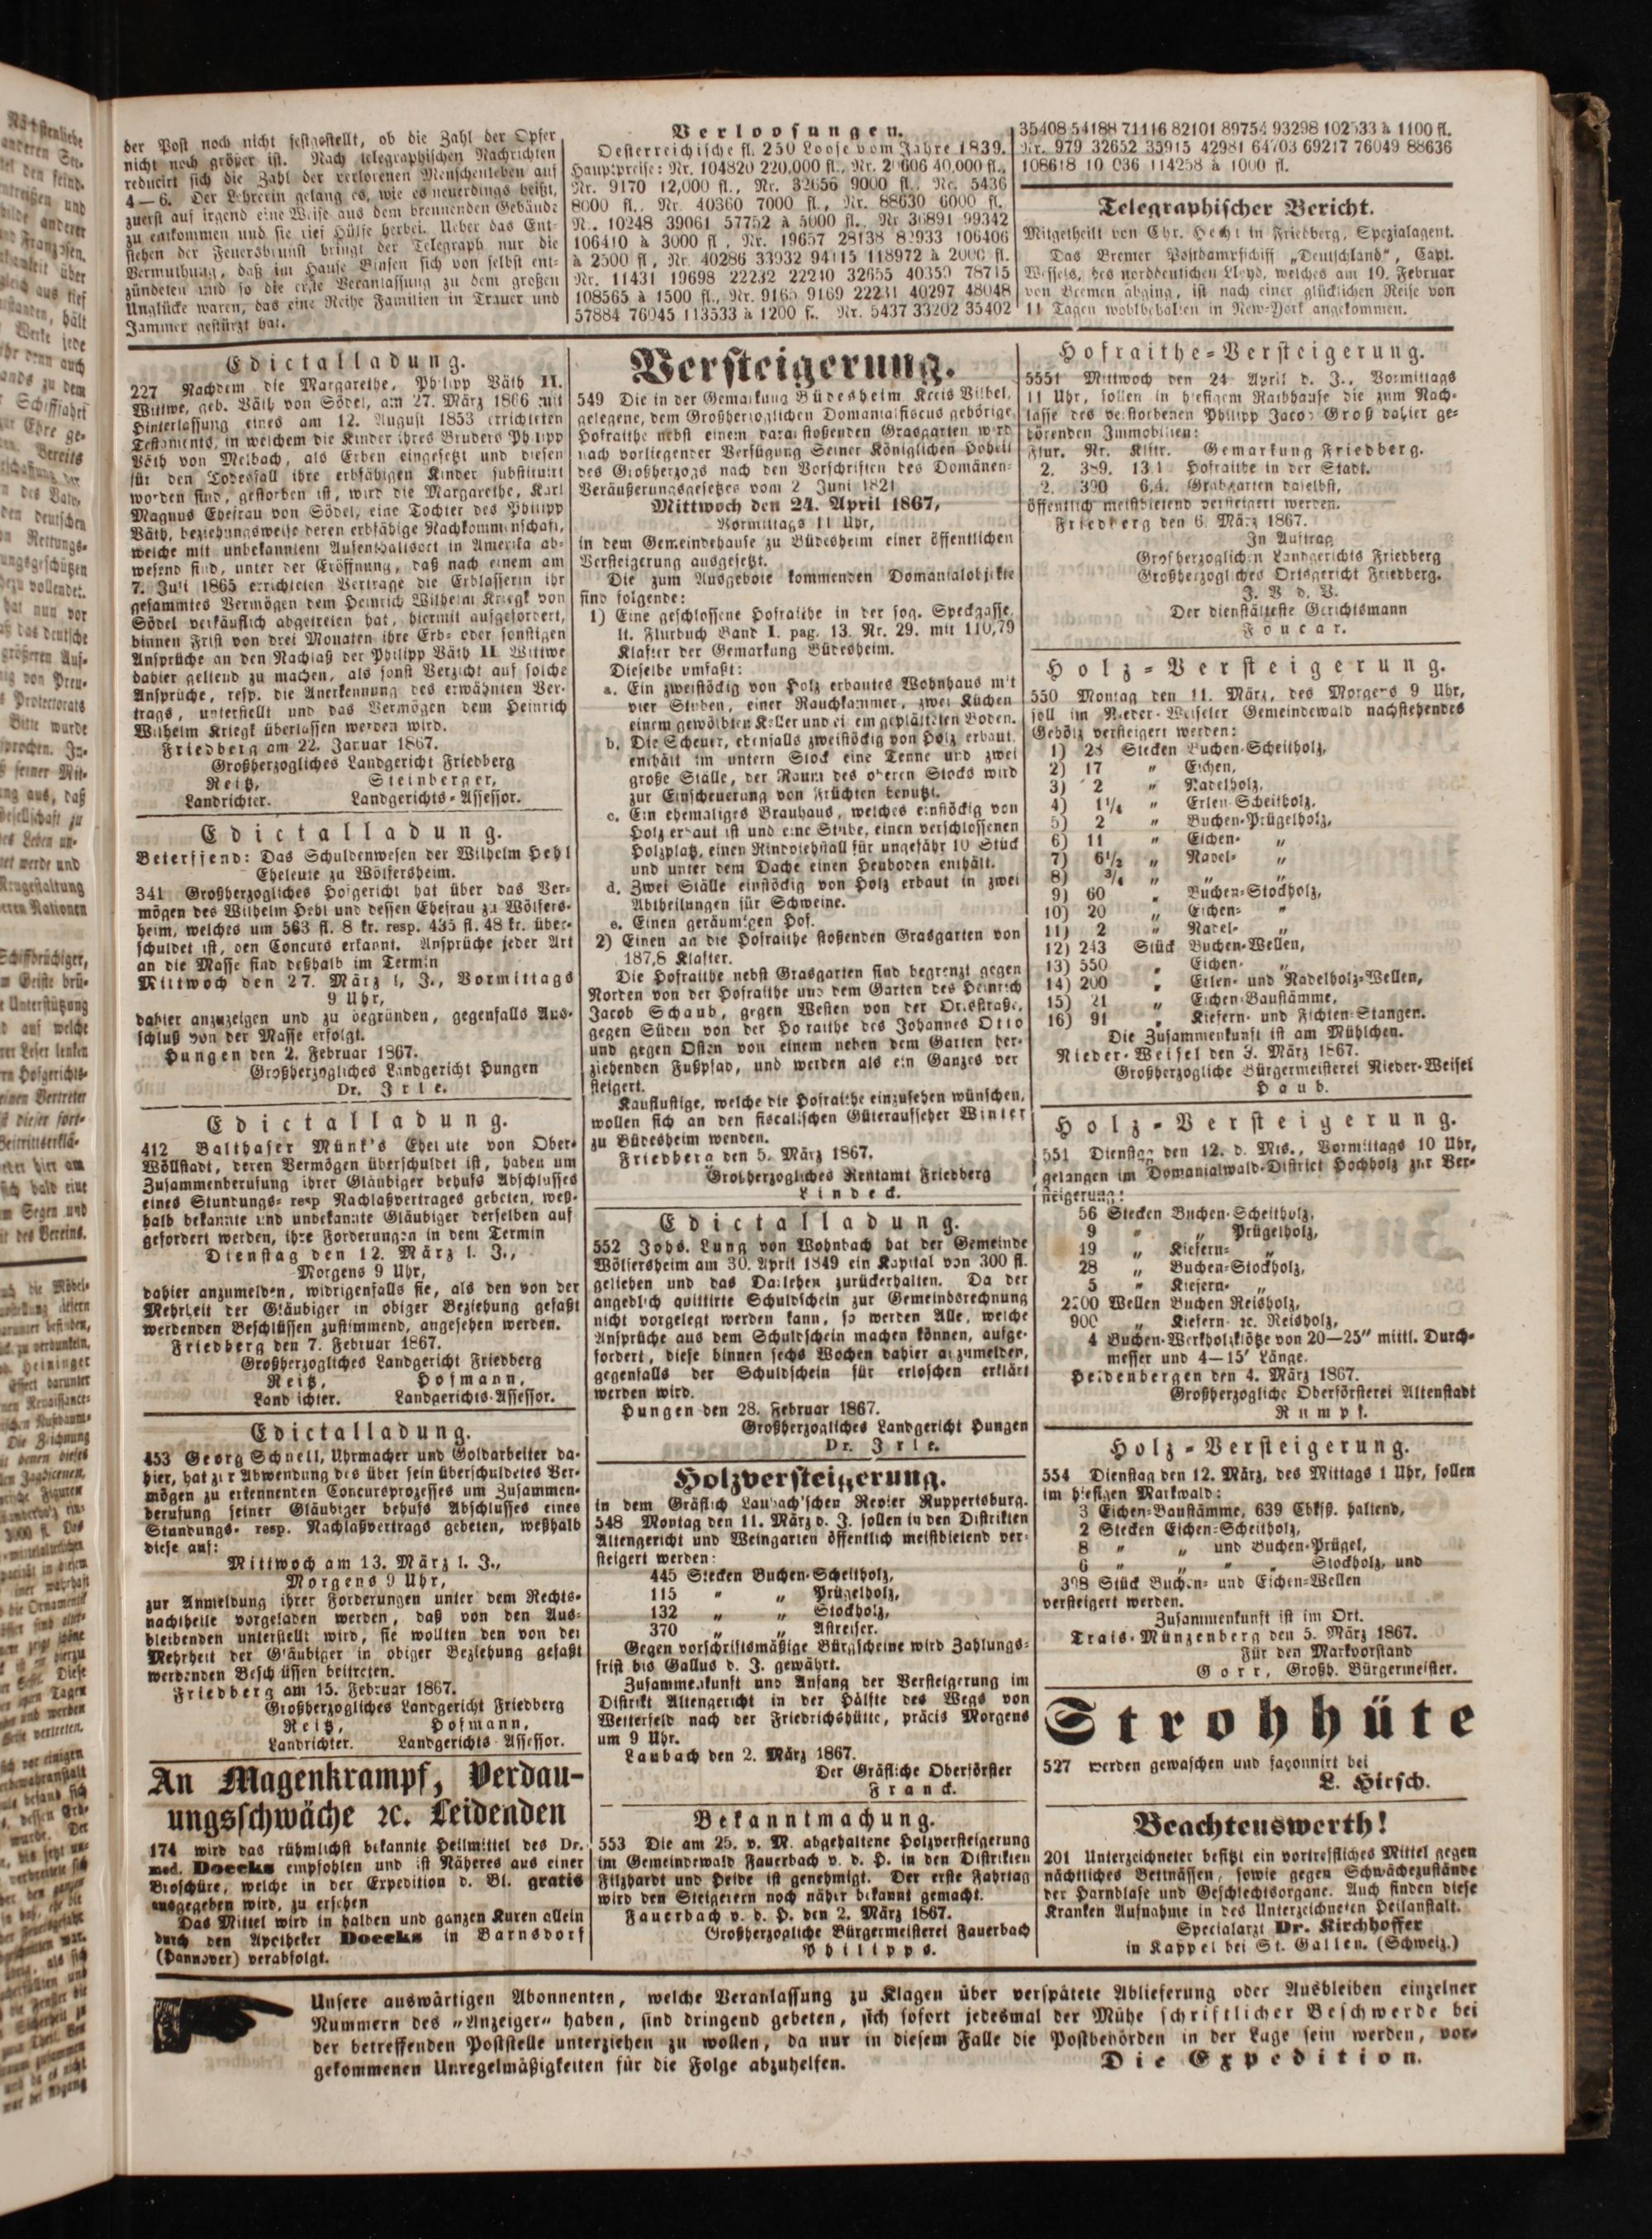 der Post noch nicht festgestellt, ob die Zahl der Opfer
nicht noch größer ist. Nach telegraphischen Nachrichten
reducirt sich die Zahl der verlorenen Menschenleben auf
4—6. Der Lehrerin gelang es, wie es neuerdings heißt,
zuerst auf irgend eine Weise aus dem brennenden Gebäude
zu entkommen und sie rief Hülfe herbei. Ueber das Ent-
stehen der Feuersbrunst bringt der Telegraph nur die
Vermuthung, daß im Hause Binsen sich von selbst ent-
zündeten und so die erste Veranlassung zu dem großen
Unglücke waren, das eine Reihe Familien in Trauer und
Jammer gestürzt hat.
Verloosungen.
Oesterreichische fl. 250 Loose vom Jahre 1839.
Hauptpreise: Nr. 104820 220,000 fl., Nr. 40,000 fl.,
Nr. 9170 12,000 fl., Nr. 32656 9000 fl., Nr. 5436
8000 fl., Nr. 40360 7000 fl., Nr. 88630 6000 fl.
N.. 10248 39061 57752 à 5000 fl., Nr. 36891 99342
106410 à 3000 fl., Nr. 19657 28138 82933 106406
à 2500 fl., Nr. 40286 33932 94115 118972 à 2000 fl.
Nr. 11431 19698 22232 22240 32655 40359 78715
108565 à 1500 fl., Nr. 9165 9169 22231 40297 48048
57884 76045 113533 à 1200 f.. Nr. 5437 33202 35402
35408 54188 71116 82101 89754 93298 102533 à 1100 fl.
Nr. 979 32652 35915 42981 64703 69217 76049 88636
108618 114258 à 1000 fl.
Telegraphischer Bericht.
Mitgetheilt von Chr. Hecht in Friedberg, Spezialagent.
Das Bremer Postdampfschiff „Deutschland“, Capt.
Wessels, des norddeutschen Lloyd, welches am 19. Februar
von Bremen abging, ist nach einer glücklichen Reise von
11 Tagen wohlbehalten in New-York angekommen.
Edictalladung.
227 Nachdem die Margarethe, Philipp Väth II.
Wittwe, geb. Väth von Södel, am 27. März 1866 mit
Hinterlassung eines am 12. August 1853 errichteten
Testaments, in welchem die Kinder ihres Bruders Philipp
Väth von Melbach, als Erben eingesetzt und diesen
für den Todesfall ihre erbfähigen Kinder substituirt
worden sind, gestorben ist, wird die Margarethe, Karl
Magnus Ehefrau von Södel, eine Tochter des Philipp
Väth, beziehungsweise deren erbfähige Nachkommenschaft,
welche mit unbekanntem Aufenthaltsort in Amerika ab-
wesend sind, unter der Eröffnung, daß nach einem am
7. Juli 1865 errichteten Vertrage die Erblasserin ihr
gesammtes Vermögen dem Heinrich Wilhelm Kriegk von
Södel verkäuflich abgetreten hat, hiermit aufgefordert,
binnen Frist von drei Monaten ihre Erb- oder sonstigen
Ansprüche an den Nachlaß der Philipp Väth II. Wittwe
dahier geltend zu machen, als sonst Verzicht auf solche
Ansprüche, resp. die Anerkennung des erwähnten Ver-
trags, unterstellt und das Vermögen dem Heinrich
Wilhelm Kriegk überlassen werden wird.
Friedberg am 22. Januar 1867.
Großherzogliches Landgericht Friedberg
Reitz, Steinberger,
Landrichter. Landgerichts-Assessor.
Edictalladung.
Betreffend: Das Schuldenwesen der Wilhelm Hebl
Eheleute zu Wölfersheim.
341 Großherzogliches Hofgericht hat über das Ver-
mögen des Wilhelm Hebl und dessen Ehefrau zu Wölfers-
heim, welches um 563 fl. 8 kr. resp. 435 fl. 48 kr. über-
schuldet ist, den Concurs erkannt. Ansprüche jeder Art
an die Masse sind deßhalb im Termin
Mittwoch den 27. März l. J., Vormittags
9 Uhr,
dahier anzuzeigen und zu begründen, gegenfalls Aus-
schluß von der Masse erfolgt.
Hungen den 2. Februar 1867.
Großherzogliches Landgericht Hungen
Dr. Irle.
Edictalladung.
412 Balthaser Münk's Eheleute von Ober-
Wöllstadt, deren Vermögen überschuldet ist, haben um
Zusammenberufung ihrer Gläubiger behufs Abschlusses
eines Stundungs- resp Nachlaßvertrages gebeten, weß-
halb bekannte und unbekannte Gläubiger derselben auf
gefordert werden, ihre Forderungen in dem Termin
Dienstag den 12. März l. J.,
Morgens 9 Uhr,
dahier anzumelden, widrigenfalls sie, als den von der
Mehrheit der Gläubiger in obiger Beziehung gefaßt
werdenden Beschlüssen zustimmend, angesehen werden.
Friedberg den 7. Februar 1867.
Großherzogliches Landgericht Friedberg
Reitz, Hofmann,
Landrichter. Landgerichts-Assessor.
Edictalladung.
453 Georg Schnell, Uhrmacher und Goldarbeiter da-
hier, hat zur Abwendung des über sein überschuldetes Ver-
mögen zu erkennenden Concursprozesses um Zusammen-
berufung seiner Gläubiger behufs Abschlusses eines
Stundungs- resp. Nachlaßvertrags gebeten, weßhalb
diese auf:
Mittwoch am 13. März l. J.,
Morgens 9 Uhr,
zur Anmeldung ihrer Forderungen unter dem Rechts-
nachtheile vorgeladen werden, daß von den Aus-
bleibenden unterstellt wird, sie wollten den von der
Mehrheit der Gläubiger in obiger Beziehung gefaßt
werdenden Beschlüssen beitreten.
Friedberg am 15. Februar 1867.
Großherzogliches Landgericht Friedberg
Reitz, Hofmann,
Landrichter. Landgerichts-Assessor.
An Magenkrampf, Verdau-
ungsschwäche ꝛc. Leidenden
174 wird das rühmlichst bekannte Heilmittel des Dr.
med. Doecks empfohlen und ist Näheres aus einer
Broschüre, welche in der Expedition d. Bl. gratis
ausgegeben wird, zu ersehen
Das Mittel wird in halben und ganzen Kuren allein
durch den Apotheker Doecks in Barnsdorf
(Hannover) verabfolgt.
Versteigerung.
549 Die in der Gemarkung Büdesheim Kreis Vilbel,
gelegene, dem Großherzoglichen Domanialfiscus gehörige
Hofraithe nebst einem daran stoßenden Grasgarten wird
nach vorliegender Verfügung Seiner Königlichen Hoheit
des Großherzogs nach den Vorschriften des Domänen-
Veräußerungsgesetzes vom 2 Juni 1821
Mittwoch den 24. April 1867,
Vormittags 11 Uhr,
in dem Gemeindehause zu Büdesheim einer öffentlichen
Versteigerung ausgesetzt.
Die zum Ausgebote kommenden Domanialobjekte
sind folgende:
1) Eine geschlossene Hofraithe in der sog. Speckgasse,
lt. Flurbuch Band I. pag. 13. Nr. 29. mit 110,79
Klafter der Gemarkung Büdesheim.
Dieselbe umfaßt:
a. Ein zweistöckig von Holz erbautes Wohnhaus mit
vier Stuben, einer Rauchkammer, zwei Küchen
einem gewölbten Keller und einem geplätteten Boden.
b. Die Scheuer, ebenfalls zweistöckig von Holz erbaut,
enthält im untern Stock eine Tenne und zwei
große Ställe, der Raum des oberen Stocks wird
zur Einscheuerung von Früchten benutzt.
c. Ein ehemaliges Brauhaus, welches einstöckig von
Holz erbaut ist und eine Stube, einen verschlossenen
Holzplatz, einen Rindviehstall für ungefähr 10 Stück
und unter dem Dache einen Heuboden enthält.
d. Zwei Ställe einstöckig von Holz erbaut in zwei
Abtheilungen für Schweine.
e. Einen geräumigen Hof.
2) Einen an die Hofraithe stoßenden Grasgarten von
187,8 Klafter.
Die Hofraithe nebst Grasgarten sind begrenzt gegen
Norden von der Hofraithe und dem Garten des Heinrich
Jacob Schaub, gegen Westen von der Ortsstraße,
gegen Süden von der Hofraithe des Johannes Otto
und gegen Osten von einem neben dem Garten her-
ziehenden Fußpfad, und werden als ein Ganzes ver
steigert.
Kauflustige, welche die Hofraithe einzusehen wünschen,
wollen sich an den fiscalischen Güteraufseher Winter
zu Büdesheim wenden.
Friedberg den 5. März 1867.
Großherzogliches Rentamt Friedberg
Lindeck.
Edictalladung.
552 Johs. Lung von Wohnbach hat der Gemeinde
Wölfersheim am 30. April 1849 ein Kapital von 300 fl.
geliehen und das Darlehen zurückerhalten. Da der
angeblich quittirte Schuldschein zur Gemeindsrechnung
nicht vorgelegt werden kann, so werden Alle, welche
Ansprüche aus dem Schuldschein machen können, aufge-
fordert, diese binnen sechs Wochen dahier anzumelden,
gegenfalls der Schuldschein für erloschen erklärt
werden wird.
Hungen den 28. Februar 1867.
Großherzogliches Landgericht Hungen
Dr. Irle.
Holzversteigerung.
in dem Gräflich Laubach'schen Revier Ruppertsburg.
548 Montag den 11. März d. J. sollen in den Distrikten
Altengericht und Weingarten öffentlich meistbietend ver-
steigert werden:
445 Stecken Buchen-Scheitholz,
115 „ „ Prügelholz,
132 „ „ Stockholz,
370 „ „ Astreiser.
Gegen vorschriftsmäßige Bürgscheine wird Zahlungs-
frist bis Gallus d. J. gewährt.
Zusammenkunft und Anfang der Versteigerung im
Distrikt Altengericht in der Hälfte des Wegs von
Wetterfeld nach der Friedrichshütte, präcis Morgens
um 9 Uhr.
Laubach den 2. März 1867.
Der Gräfliche Oberförster
Franck.
Bekanntmachung.
553 Die am 25. v. M. abgehaltene Holzversteigerung
im Gemeindewald Fauerbach v. d. H. in den Distrikten
Filzhardt und Heide ist genehmigt. Der erste Fahrtag
wird den Steigerern noch näher bekannt gemacht.
Fauerbach v. d. H. den 2. März 1867.
Großherzogliche Bürgermeisterei Fauerbach
Philipps.
Hofraithe-Versteigerung.
5551 Mittwoch den 24 April d. J., Vormittags
11 Uhr, sollen in hiesigem Rathhause die zum Nach-
lasse des verstorbenen Philipp Jacob Groß dahier ge-
hörenden Immobilien:
Flur. Nr. Klftr. Gemarkung Friedberg.
2. 389. 13,1 Hofraithe in der Stadt.
2. 390 6,4. Grabgarten daselbst,
öffentlich meistbietend versteigert werden.
Friedberg den 6. März 1867.
In Auftrag
Großherzoglichen Landgerichts Friedberg
Großherzogliches Ortsgericht Friedberg.
J. V. d. V.
Der dienstälteste Gerichtsmann
Foucar.
Holz-Versteigerung.
550 Montag den 11. März, des Morgens 9 Uhr,
soll im Nieder-Weiseler Gemeindewald nachstehendes
Gehölz versteigert werden:
1) 28 Stecken Buchen-Scheitholz,
2) 17 „ Eichen,
3) 2 „ Nadelholz,
4) 1¼ „ Erlen-Scheitholz,
5) 2 „ Buchen-Prügelholz,
6) 11 „ Eichen- „
7) 6½ „ Nadel- „
8) ¾ „ „ „
9) 60 „ Buchen-Stockholz,
10) 20 „ Eichen- „
11) 2 „ Nadel- „
12) 243 Stück Buchen-Wellen,
13) 550 „ Eichen- „
14) 200 „ Erlen- und Nadelholz-Wellen,
15) 21 „ Eichen-Baustämme,
16) 91 „ Kiefern- und Fichten-Stangen.
Die Zusammenkunft ist am Mühlchen.
Nieder-Weisel den 3. März 1867.
Großherzogliche Bürgermeisterei Nieder-Weisel
Haub.
Holz-Versteigerung.
551 Dienstag den 12. d. Mts., Vormittags 10 Uhr,
gelangen im Domanialwald-District Hochholz zur Ver-
steigerung:
56 Stecken Buchen-Scheitholz,
9 „ „ Prügelholz,
19 „ Kiefern- „
28 „ Buchen-Stockholz,
5 „ Kiefern- „
2200 Wellen Buchen Reisholz,
900 „ Kiefern- ꝛc. Reisholz,
4 Buchen-Werkholzklötze von 20—25" mittl. Durch-
messer und 4—15' Länge.
Heldenbergen den 4. März 1867.
Großherzogliche Oberförsterei Altenstadt
Rumpf.
Holz-Versteigerung.
554 Dienstag den 12. März, des Mittags 1 Uhr, sollen
im hiesigen Markwald:
3 Eichen-Baustämme, 639 Cbkfß. haltend,
2 Stecken Eichen-Scheitholz,
8 „ „ und Buchen-Prügel,
6 „ „ „ „ Stockholz, und
398 Stück Buchen- und Eichen-Wellen
versteigert werden.
Zusammenkunft ist im Ort.
Trais-Münzenberg den 5. März 1867.
Für den Markvorstand
Gorr, Großh. Bürgermeister.
Strohhüte
527 werden gewaschen und façonnirt bei
L. Hirsch.
Beachtenswerth!
201 Unterzeichneter besitzt ein vortreffliches Mittel gegen
nächtliches Bettnässen, sowie gegen Schwächezustände
der Harnblase und Geschlechtsorgane. Auch finden diese
Kranken Aufnahme in des Unterzeichneten Heilanstalt.
Specialarzt Dr. Kirchhoffer
in Kappel bei St. Gallen. (Schweiz.)
Unsere auswärtigen Abonnenten, welche Veranlassung zu Klagen über verspätete Ablieferung oder Ausbleiben einzelner
Nummern des „Anzeiger“ haben, sind dringend gebeten, sich sofort jedesmal der Mühe schriftlicher Beschwerde bei
der betreffenden Poststelle unterziehen zu wollen, da nur in diesem Falle die Postbehörden in der Lage sein werden, vor-
gekommenen Unregelmäßigkeiten für die Folge abzuhelfen.
Die Expedition.